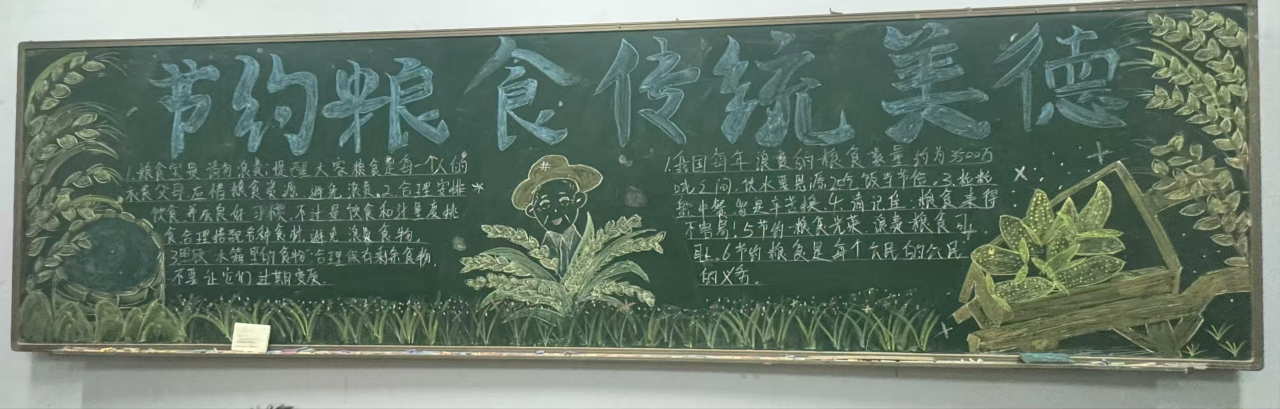 节约粮食传统美德
1.粮食宝贵 请勿浪费 提醒大家粮食是每一个人的
衣食父母 应惜粮食资源 避免浪费,2 合理安排
饮食 养成良好习惯 不过量饮食和过量度挑
食合理搭配各种食材 避免浪费食物.
3 冰箱里的食物 合理保存剩余食物
不要让它们过期变废.
1.我国每年浪费的粮食数量约为3500万
吨之间.饮水要思源 2吃饭当节俭.3.粒粒
盘中餐 皆是辛苦 4.请记住 粮食来得
不容易!5节约粮食光荣 浪费粮食可
耻.6节约粮食是每个公民的公民
的义务.